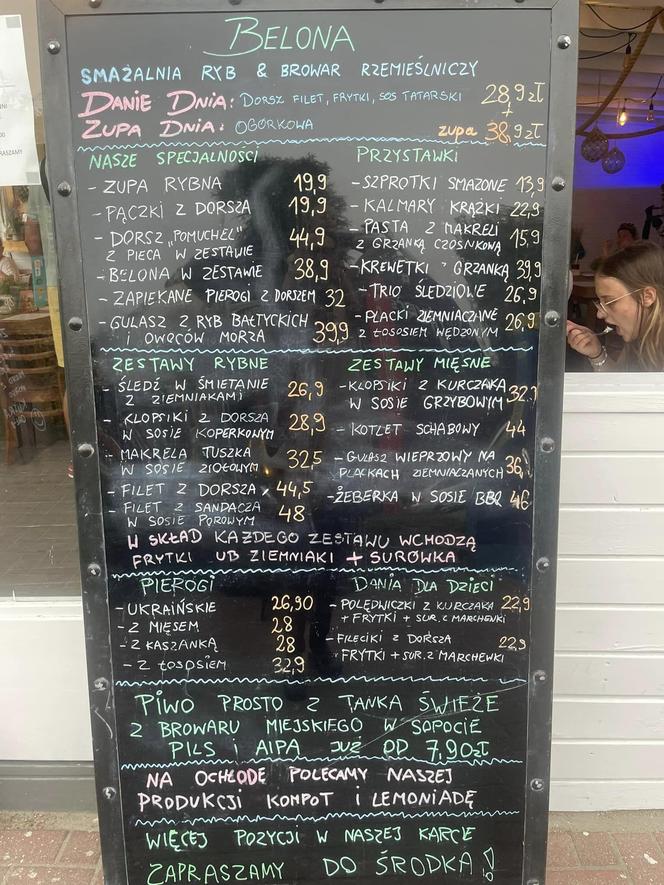 BELONA
SMAŻALNIA RYB & BROWAR RZEMIEŚLNICZY
DANIE DNIA: DORSZ FILET, FRYTKI, SOS TATARSKI 28,9 zł
+
ZUPA DNIA: OGÓRKOWA zupa 38,9 zł
NASZE SPECJALNOŚCI
- ZUPA RYBNA 19,9
- PĄCZKI Z DORSZA 19,9
- DORSZ „POMUCHEL"
Z PIECA W ZESTAWIE 44,9
- BELONA W ZESTAWIE 38,9
- ZAPIEKANE PIEROGI Z DORSZEM 32
- GULASZ Z RYB BAŁTYCKICH
i OWOCÓW MORZA 39,9
PRZYSTAWKI
- SZPROTKI SMAŻONE 13,9
- KALMARY KRĄŻKI 22,9
- PASTA Z MAKRELI
Z GRZANKĄ CZOSNKOWĄ 15,9
- KREWETKI Z GRZANKĄ 39,9
- TRIO ŚLEDZIOWE 26,9
- PLACKI ZIEMNIACZANE
Z ŁOSOSIEM WĘDZONYM 26,9
ZESTAWY RYBNE
- ŚLEDŹ W ŚMIETANIE
Z ZIEMNIAKAMI 26,9
- KLOPSIKI Z DORSZA
W SOSIE KOPERKOWYM 28,9
- MAKRELA TUSZKA
W SOSIE ZIOŁOWYM 32,5
- FILET Z DORSZA 44,5
- FILET Z SANDACZA
W SOSIE POROWYM 48
ZESTAWY MIĘSNE
- KLOPSIKI Z KURCZAKA
W SOSIE GRZYBOWYM 32,
- KOTLET SCHABOWY 44
- GULASZ WIEPRZOWY NA
PLACKACH ZIEMNIACZANYCH 36,
- ŻEBERKA W SOSIE BBQ 46
W SKŁAD KAŻDEGO ZESTAWU WCHODZĄ
FRYTKI UB ZIEMNIAKI + SURÓWKA
PIEROGI
- UKRAIŃSKIE 26,90
- Z MIĘSEM 28
- Z KASZANKĄ 28
- Z ŁOSOSIEM 32,9
DANIA DLA DZIECI
- POLĘDWICZKI Z KURCZAKA 22,9
+ FRYTKI + SUR. Z MARCHEWKI
- FILECIKI Z DORSZA 22,9
FRYTKI + SUR. Z MARCHEWKI
PIWO PROSTO Z TANKA ŚWIEŻE
Z BROWARU MIEJSKIEGO W SOPOCIE
PILS i AIPA JUŻ OD 7,90 zł
NA OCHŁODĘ POLECAMY NASZEJ
PRODUKCJI KOMPOT i LEMONIADĘ
WIĘCEJ POZYCJI W NASZEJ KARCIE
ZAPRASZAMY DO ŚRODKA!